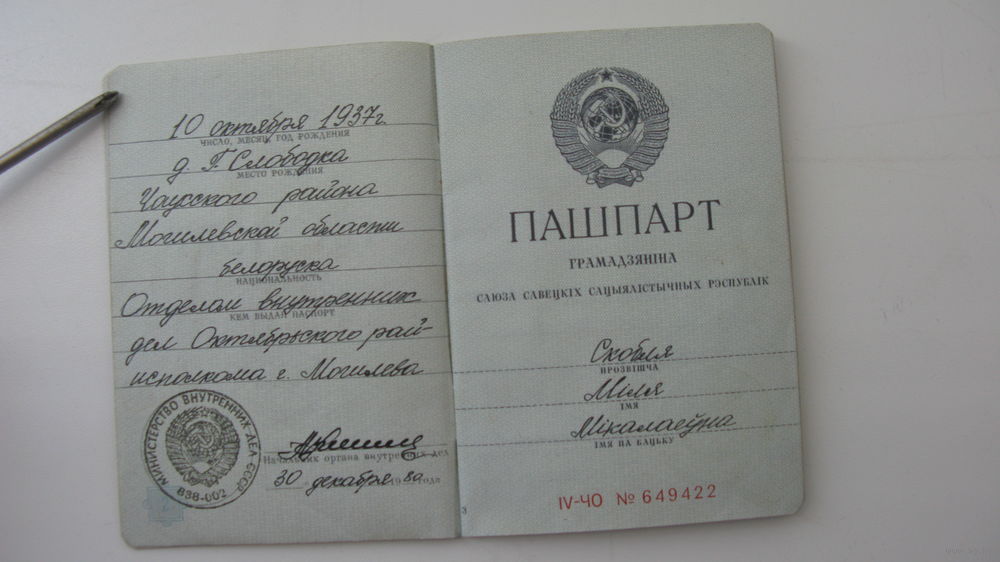 10 октября 1937г.
ЧИСЛО, МЕСЯЦ, ГОД РОЖДЕНИЯ
д. Г. Слободка
МЕСТО РОЖДЕНИЯ
Чаусского района
Могилевской области
белоруска
НАЦИОНАЛЬНОСТЬ
Отделом внутренних
КЕМ ВЫДАН ПАСПОРТ
дел Октябрьского рай-
исполкома г. Могилева
МИНИСТЕРСТВО ВНУТРЕННИХ ДЕЛ СССР
838-002
Начальник органа внутренних дел
30 декабря 1980 года
3
ПАШПАРТ
ГРАМАДЗЯНІНА
САЮЗА САВЕЦКІХ САЦЫЯЛІСТЫЧНЫХ РЭСПУБЛІК
Скобля
ПРОЗВІШЧА
Міля
ІМЯ
Мікалаеўна
ІМЯ ПА БАЦЬКУ
IV-ЧО № 649422